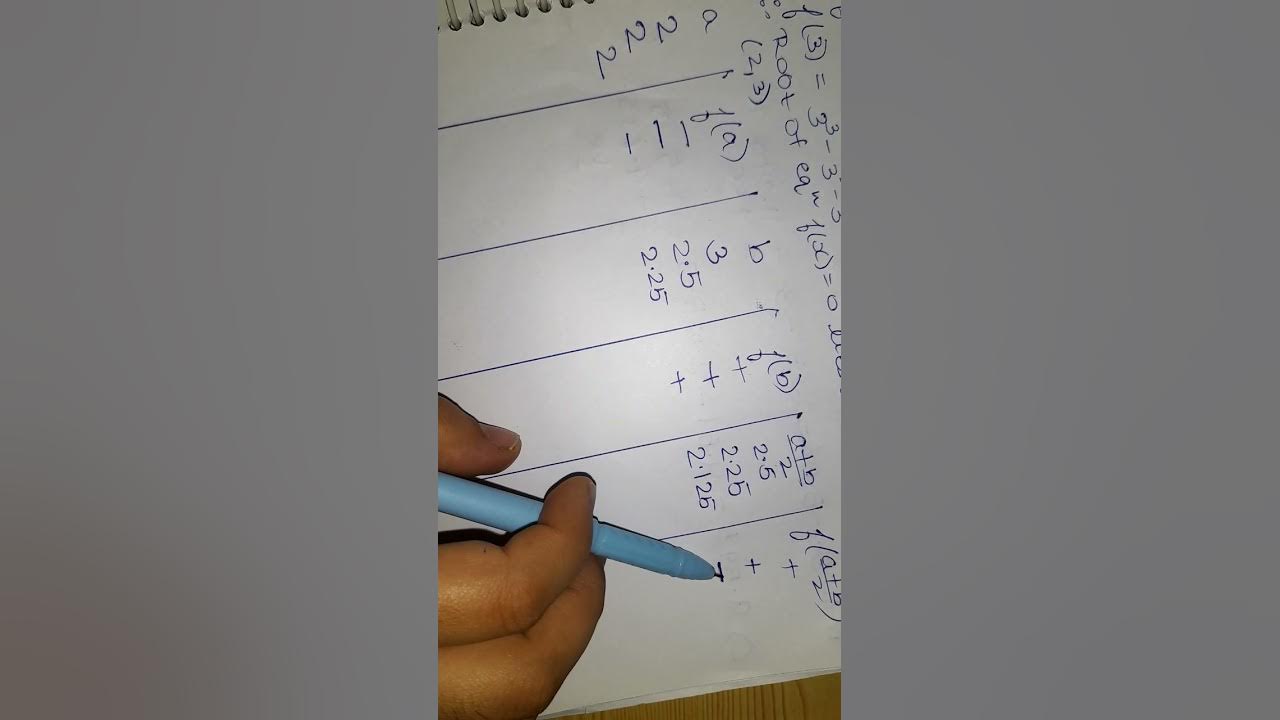 f(3) = 3³ - 3 - 3
∴ Root of eqn f(x) = 0
(2,3)
a f(a) b f(b) a+b/2 f(a+b/2)
2 - 3 + 2.5 +
2 - 2.5 + 2.25 +
2 - 2.25 + 2.125 -